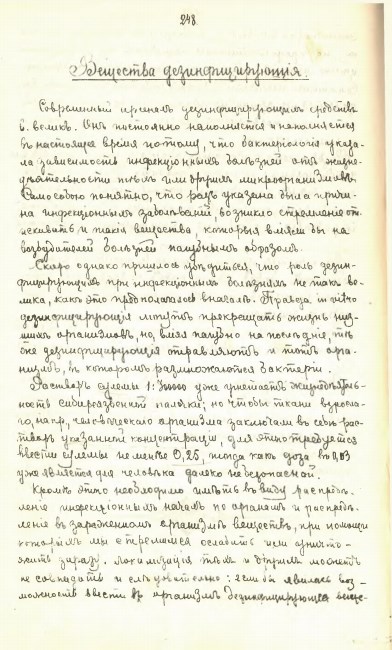 248.
Вещества дезинфицирующія.
Современный арсеналъ дезинфицирующихъ средствъ
великъ. Онъ постоянно наполнялся и пополняется
въ настоящее время потому, что бактеріологія указа-
ла зависимость инфекціонныхъ болѣзней отъ жизне-
дѣятельности тѣхъ или другихъ микроорганизмовъ.
Само собою понятно, что разъ указана была причи-
на инфекціонныхъ заболѣваній, возникло стремленіе от-
ыскивать и такія вещества, которыя вліяли бы на
возбудителей болѣзней пагубнымъ образомъ.
Скоро однако пришлось убѣдиться, что роль дезин-
фицирующихъ при инфекціонныхъ болѣзняхъ не такъ ве-
лика, какъ это предполагалось вначалѣ. Правда in vitro
дезинфицирующія могутъ прекращать жизнь низ-
шихъ организмовъ, но вліяя пагубно на послѣдніе, тѣ
же дезинфицирующія отравляютъ и тотъ орга-
низмъ, въ которомъ размножаются бактеріи.
Растворъ сулемы 1:300000 уже угнетаетъ жизнедѣятель-
ность сибиреязвенной палочки; но чтобы ткани взросла-
го, напр., человѣческаго организма заключали въ себѣ рас-
творъ указанной концентраціи, для этого требуется
ввести сулемы не менѣе 0,25, тогда какъ доза въ 0,03
уже является для человѣка далеко небезопасной.
Кромѣ этого необходимо имѣть въ виду распредѣ-
леніе инфекціонныхъ началъ по органамъ и распредѣ-
леніе въ зараженномъ организмѣ веществъ, при помощи
которыхъ мы стремимся ослабить или уничто-
жить заразу. Локализація тѣхъ и другихъ можетъ
не совпадать и слѣдовательно: если бы явилась воз-
можность ввести въ организмъ дезинфицирующее веще-